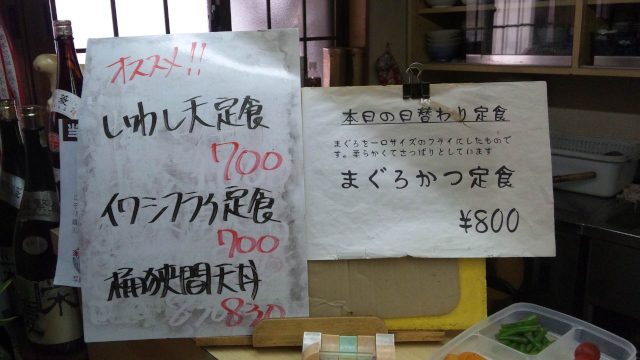 オススメ!!
いわし天定食
700
イワシフライ定食
700
桶狭間天丼
830
本日の日替わり定食
まぐろを一口サイズのフライにしたもので
す。柔らかくてさっぱりとしています
まぐろかつ定食
¥800